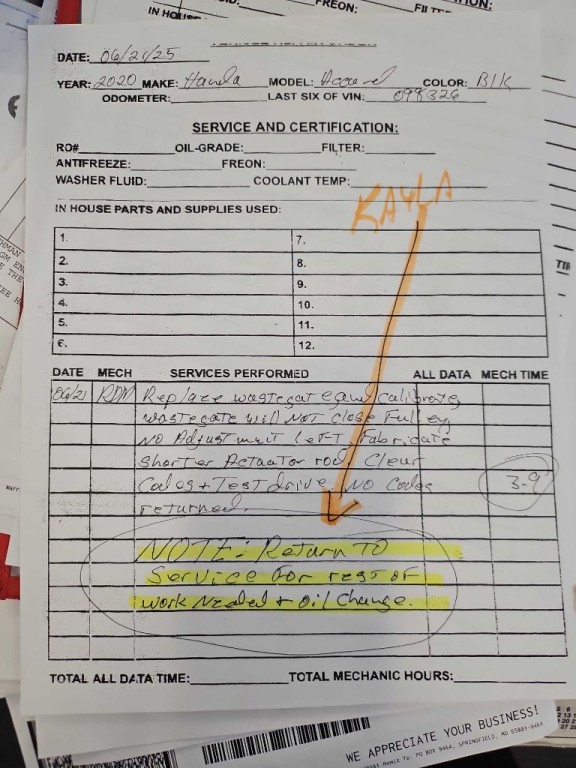 IN HOUSE
FREON:
FILTE
ION:
DATE: 06/21/25
YEAR: 2020 MAKE: Honda MODEL: Accord COLOR: Blk
ODOMETER: LAST SIX OF VIN: 098326
SERVICE AND CERTIFICATION:
RO# OIL-GRADE: FILTER:
ANTIFREEZE: FREON:
WASHER FLUID: COOLANT TEMP:
KAYLA
IN HOUSE PARTS AND SUPPLIES USED:
1. 7.
2. 8.
3. 9.
4. 10.
5. 11.
6. 12.
DATE MECH SERVICES PERFORMED ALL DATA MECH TIME
06/21 RDM Replace wastegate and calibrate,
wastegate will NOT close Fulley,
NO Adjustment Left, Fabricate
shorter Actuator rod, Clear
Codes + Test drive, NO Codes 3-9
returned.
NOTE: Return TO
Service For rest of
work Needed + oil change.
TOTAL ALL DATA TIME: TOTAL MECHANIC HOURS:
WE APPRECIATE YOUR BUSINESS!
Remit To: PO BOX 9464, SPRINGFIELD, MO 65801-9464